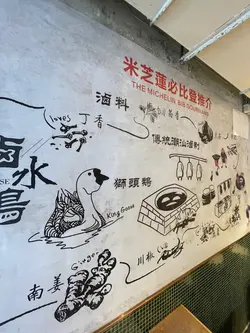 米芝蓮必比登推介
THE MICHELIN BIB GOURMAND
滷料
Cloves
丁香
傳統潮汕滷水
滷水
鵝
獅頭鵝
King Goose
川椒
Ginger
南薑